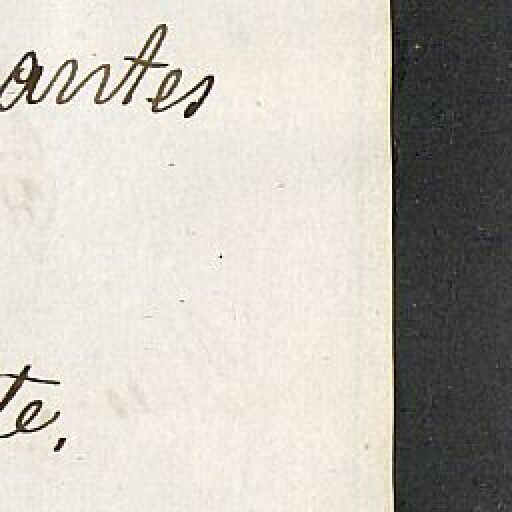 antes
te,